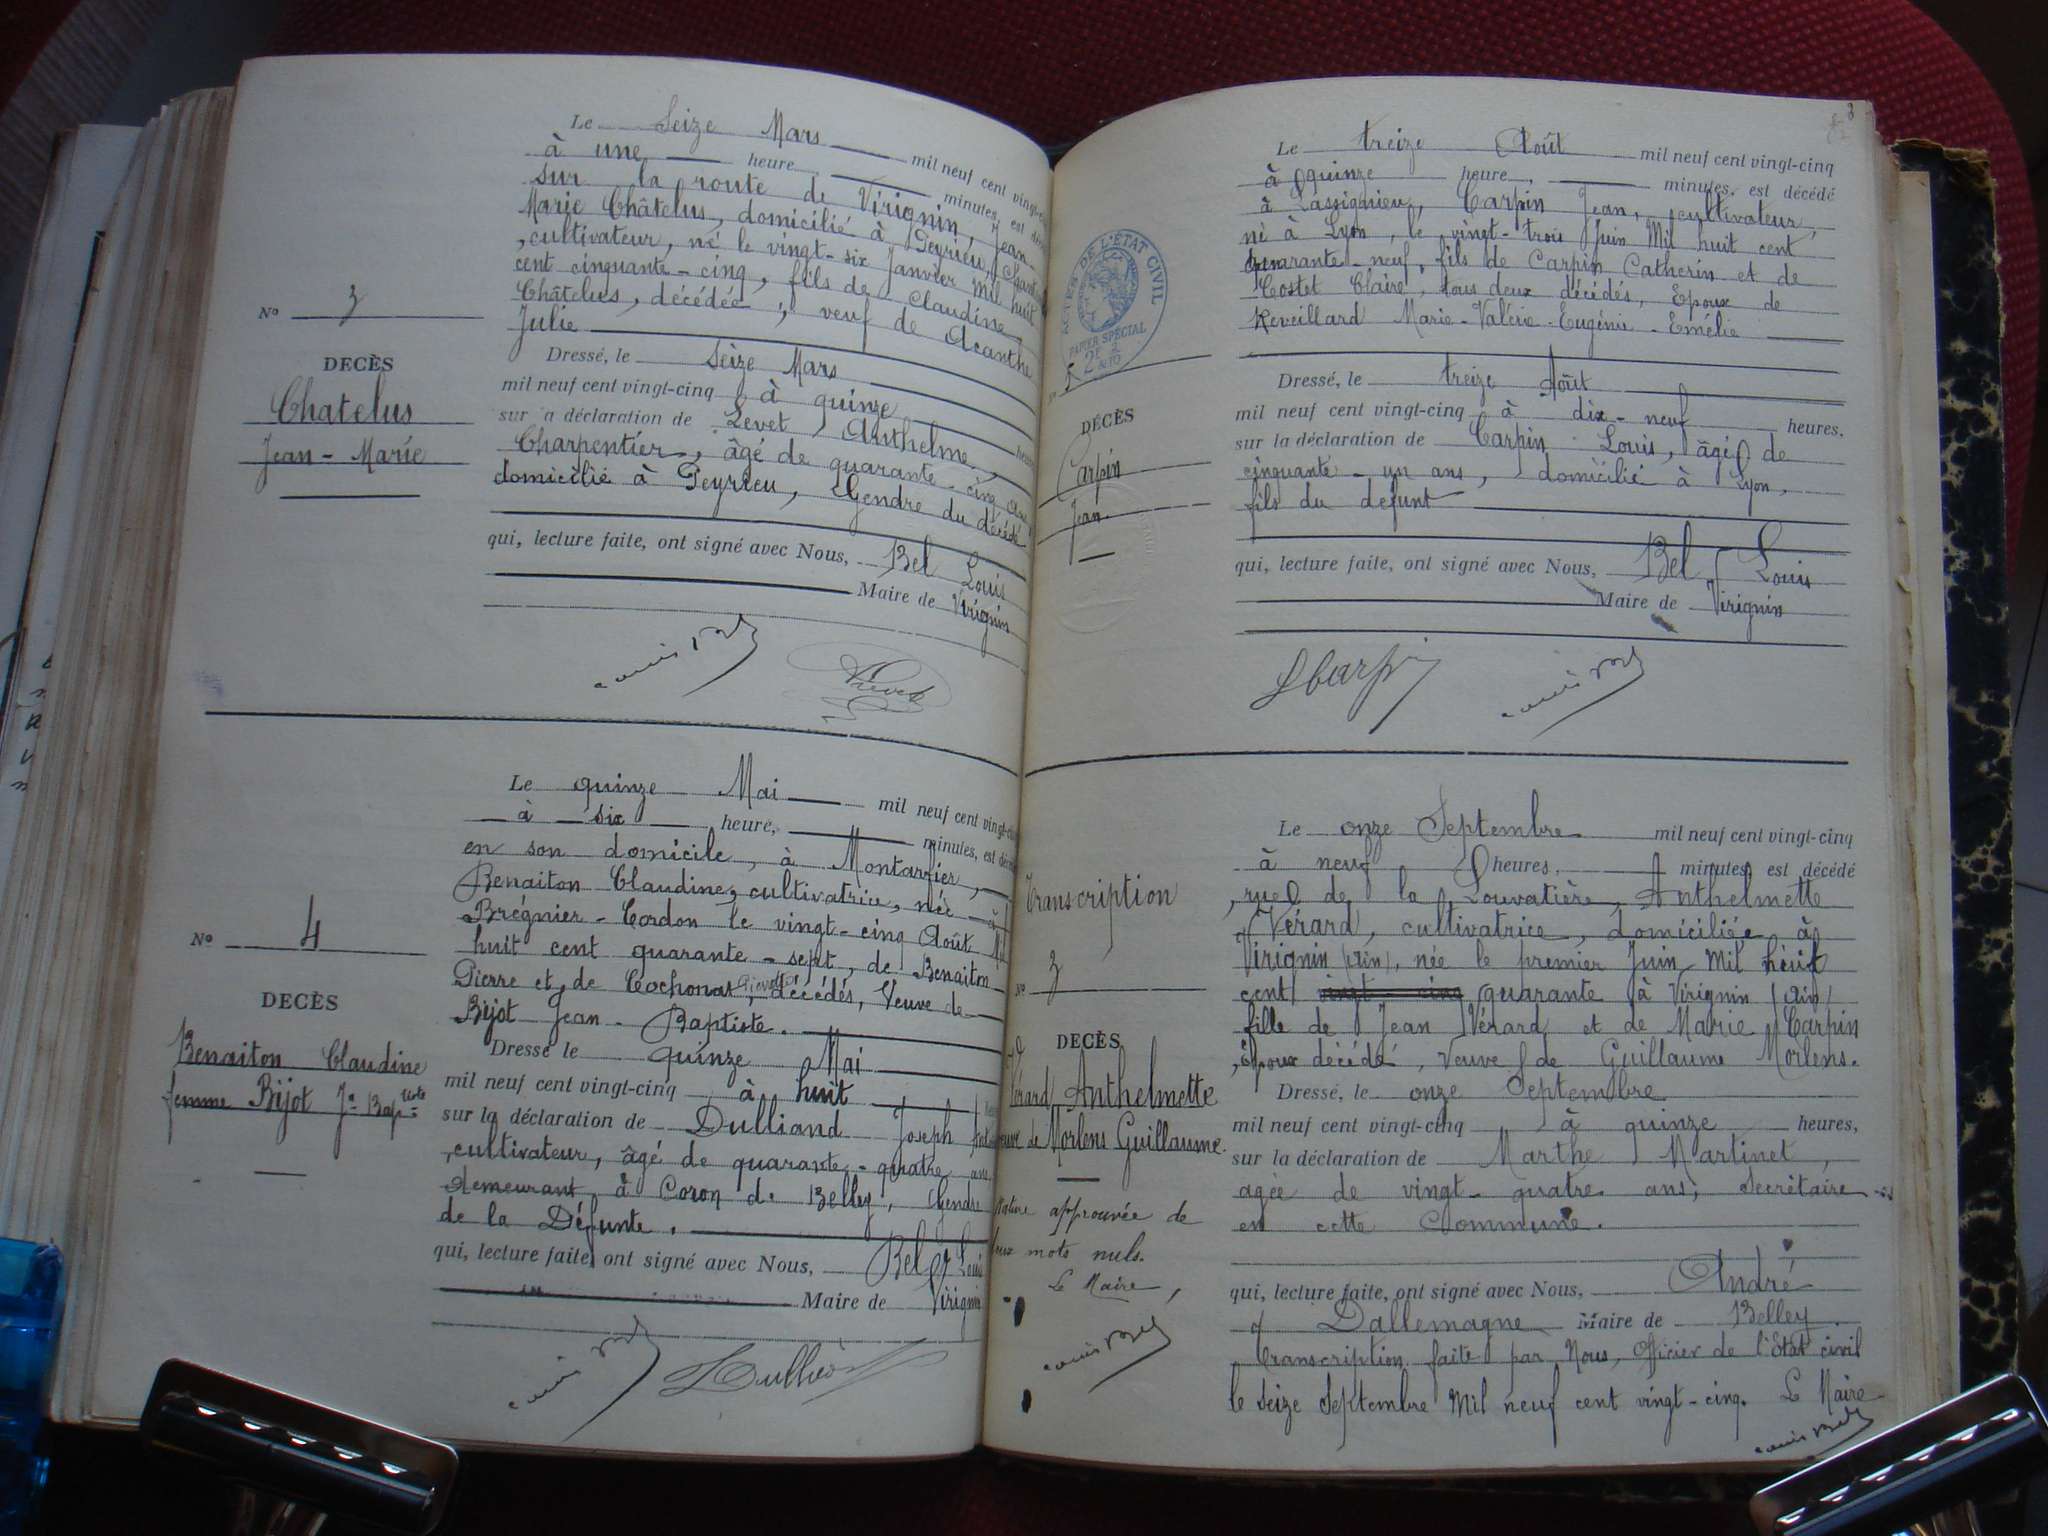 Le Seize Mars mil neuf cent vingt-
à une heure, minutes, est
sur la route de Virignin, Jean-
Marie Châtelus, domicilié à Peyrieu,
cultivateur, né le vingt-six Janvier Mil huit
cent cinquante-cinq, fils de Claudine
Châtelus, décédée, veuf de Acanthe
Julie
No 3
DECÈS
Chatelus
Jean-Marie
Dressé, le Seize Mars
mil neuf cent vingt-cinq à quinze
sur a déclaration de Levet Anthelme,
Charpentier, âgé de quarante-cinq ans,
domicilié à Peyrieu, Gendre du décédé
qui, lecture faite, ont signé avec Nous, Bel Louis
Maire de Virignin
Louis Bel
Le quinze Mai mil neuf cent vingt-
à six heure, minutes, est
en son domicile, à Montarfier,
Benaiton Claudine, cultivatrice, née à
Brégnier-Cordon le vingt-cinq Août
huit cent quarante-sept, de Benaiton
Pierre et de Cochonat décédés, Veuve de
Bijot Jean-Baptiste.
No 4
DECÈS
Benaiton Claudine
femme Bijot Jn Baptiste
Dressé le quinze Mai
mil neuf cent vingt-cinq à huit
sur la déclaration de Dulliand Joseph
cultivateur, âgé de quarante-quatre ans,
demeurant à Coron de Belley, Gendre
de la Défunte.
qui, lecture faite, ont signé avec Nous, Bel Louis
Maire de Virignin
Louis Bel
3
Le treize Août mil neuf cent vingt-cinq
à quinze heure, minutes, est décédé
à Lassignieu, Carpin Jean, cultivateur,
né à Lyon, le vingt-trois Juin Mil huit cent
quarante-neuf, fils de Carpin Catherin et de
Costet Claire, tous deux décédés, Epoux de
Reveillard Marie-Valérie-Eugénie-Emélie
ACTES DE L'ÉTAT CIVIL
PAPIER SPÉCIAL
DÉCÈS
Carpin
Jean
Dressé, le treize Août
mil neuf cent vingt-cinq à dix-neuf heures,
sur la déclaration de Carpin Louis, âgé de
cinquante-un ans, domicilié à Lyon,
fils du defunt
qui, lecture faite, ont signé avec Nous, Bel Louis
Maire de Virignin
LCarpin
Louis Bel
Le onze Septembre mil neuf cent vingt-cinq
à neuf heures, minutes, est décédé
rue de la Louvatière, Anthelmette
Vérard, cultivatrice, domiciliée à
Virignin (Ain), née le premier Juin Mil huit
cent vingt-cinq quarante à Virignin (Ain)
fille de Jean Vérard et de Marie Carpin
Epoux décédé, Veuve de Guillaume Morlens.
Transcription
No 3
DECÈS
Vérard Anthelmette
veuve de Morlens Guillaume.
approuvée de
deux mots nuls.
Le Maire,
Louis Bel
Dressé, le onze Septembre
mil neuf cent vingt-cinq à quinze heures,
sur la déclaration de Marthe Martinet,
agée de vingt-quatre ans, Secrétaire
en cette Commune.
qui, lecture faite, ont signé avec Nous, André
Dallemagne Maire de Belley.
Transcription faite par Nous, Officier de l'Etat civil
le seize Septembre Mil neuf cent vingt-cinq. Le Maire
Louis Bel